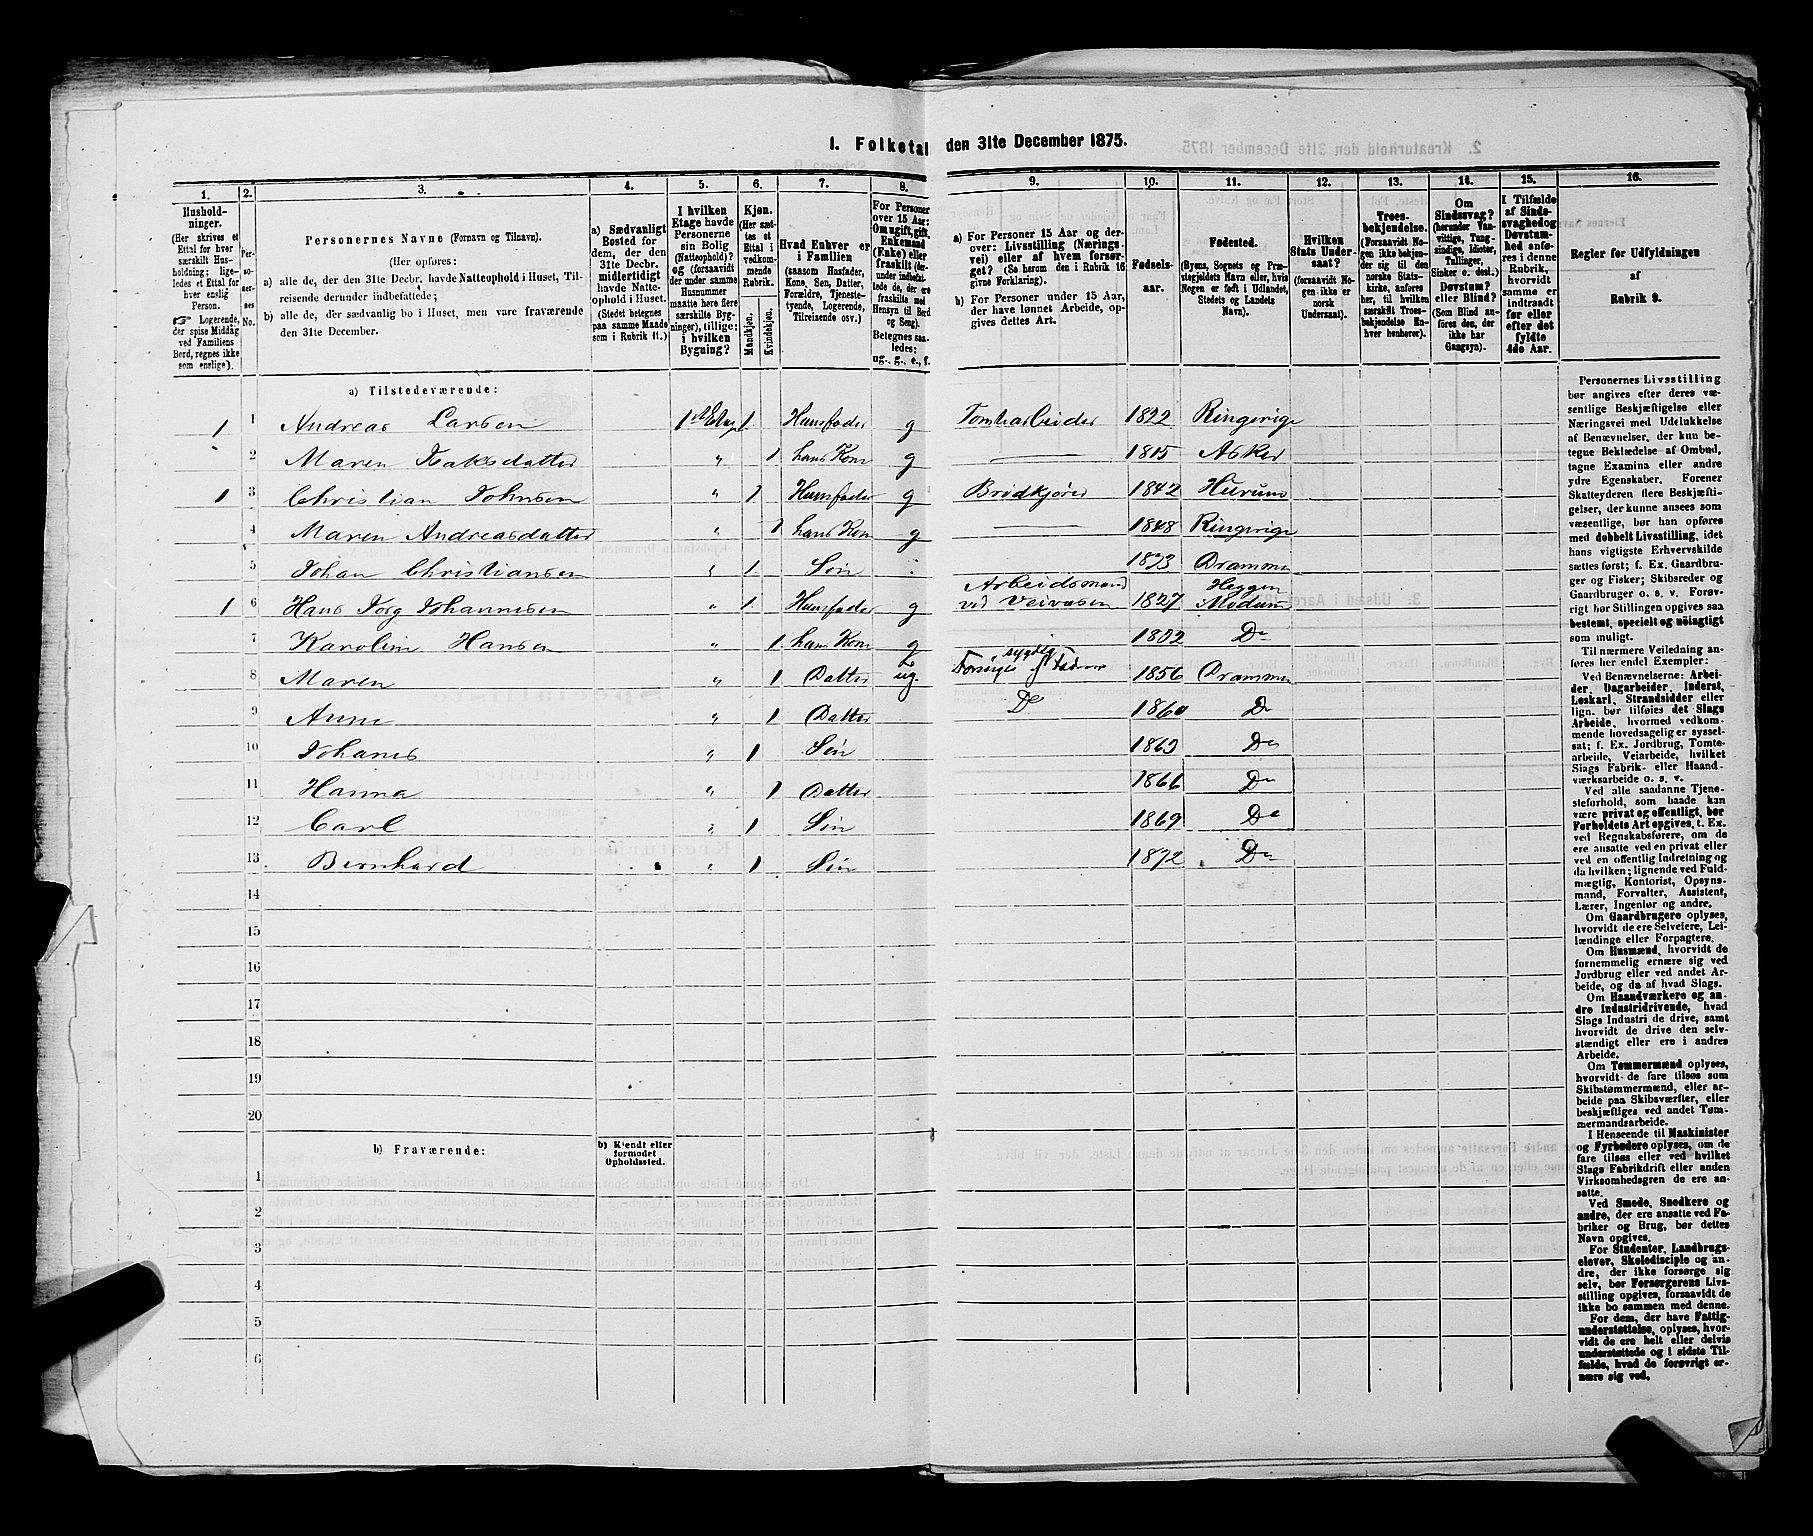 1. Folketal den 31te December 1875.
1. 2. 3. 4. 5. 6. 7. 8. 9. 10. 11. 12. 13. 14. 15. 16.
Hushold-
ninger.
(Her skrives et
Ettal for hver
særskilt Hus-
holdning; lige-
ledes et Ettal for
hver enslig
Person.
☞ Logerende,
der spise Middag
ved Familiens
Bord, regnes ikke
som enslige).
Per-
so-
ner-
nes
No.
Personernes Navne (Fornavn og Tilnavn).
(Her opføres:
a) alle de, der den 31te Decbr. havde Natteophold i Huset, Til-
reisende derunder indbefattede;
b) alle de, der sædvanlig bo i Huset, men vare fraværende
den 31te December.
a) Sædvanligt
Bosted for
dem, der den
31te Decbr.
midlertidigt
havde Natte-
ophold i Huset.
(Stedet betegnes
paa samme Maade
som i Rubrik 11.)
I hvilken
Etage havde
Personerne
sin Bolig
(Natteophold)?
og (forsaavidt
der under samme
Husnummer
maatte høre flere
særskilte Byg-
ninger), tillige:
i hvilken
Bygning?
Kjøn.
(Her sæt-
tes et
Ettal i
vedkom-
mende
Rubrik.
Mandkjøn.
Kvindekjøn.
Hvad Enhver er
i Familien
(saasom Husfader,
Kone, Søn, Datter,
Forældre, Tjeneste-
tyende, Logerende,
Tilreisende osv.)
For Personer
over 15 Aar:
Om ugift, gift,
Enkemand
(Enke) eller
fraskilt (der-
under indbefat-
tede de, der ere
fraskilte med
Hensyn til Bord
og Seng).
Betegnes saa-
ledes:
ug., g., e., f.
a) For Personer 15 Aar og der-
over: Livsstilling (Nærings-
vei) eller af hvem forsør-
get? (Se herom den i Rubrik 16
givne Forklaring).
b) For Personer under 15 Aar,
der have lønnet Arbeide, op-
gives dettes Art.
Fødsels-
aar.
Fødested.
(Byens, Sognets og Præ-
stegjeldets Navn eller, hvis
Nogen er født i Udlandet,
Stedets og Landets
Navn).
Hvilken
Stats Under-
saat?
(forsaavidt No-
gen ikke er
norsk
Undersaat).
Troes-
bekjendelse.
(Forsaavidt No-
gen ikke bekjen-
der sig til den
norske Stats-
kirke, anføres
her, til hvilken
særskilt Troes-
bekjendelse En-
hver henhører).
Om
Sindssvag?
(herunder Van-
vittige, Tung-
sindige, Idioter,
Tullinger,
Sinker o. desl.)
Døvstum?
eller Blind?
(Som Blind an-
føres den, der
ikke har
Gangsyn).
I Tilfælde
af Sinds-
svaghed og
Døvstum-
hed anfø-
res i denne
Rubrik,
hvorvidt
samme er
indtraadt
før eller
efter det
fyldte
4de Aar.
Regler for Udfyldningen
af
Rubrik 9.
a) Tilstedeværende:
1 1 Andreas Larsen 1ste Etage 1 Huusfader g Tomtarbeider 1822 Ringerige
2 Maren Isaksdatter " 1 hans Kone g 1815 Asker
1 3 Christian Johnsen " 1 Huusfader g Brødkjører 1842 Hurum
4 Maren Andreasdatter " 1 hans Kone g 1848 Ringerige
5 Johan Christiansen " 1 Søn 1873 Drammen
1 6 Hans Jørg Johannesen " 1 Huusfader g Arbeidsmand ved Veivæsen 1827 Heggen Modum
7 Karolin Hansen " 1 hans Kone g 1832 Do
8 Maren " 1 Datter ug. Forsørges af Fader sygelig 1856 Drammen
9 Anne " 1 Datter Do 1860 Do
10 Johanes " 1 Søn 1863 Do
11 Hanna " 1 Datter 1866 Do
12 Carl " 1 Søn 1869 Do
13 Bernhard " 1 Søn 1872 Do
14
15
16
17
18
19
20
b) Fraværende:
b) Kjendt eller
formodet
Opholdssted.
1
2
3
4
5
6
Personernes Livsstilling
bør angives efter deres væ-
sentlige Beskjæftigelse eller
Næringsvei med Udelukkelse
af Benævnelser, der kun be-
tegne Beklædelse af Ombud,
tagne Examina eller andre
ydre Egenskaber. Forener
Skatteyderen flere Beskjæfti-
gelser, der kunne ansees som
væsentlige, bør han opføres
med dobbelt Livsstilling, idet
hans vigtigste Erhvervskilde
sættes først; f. Ex. Gaardbru-
ger og Fisker; Skibsreder og
Gaardbruger o. s. v. Forøv-
rigt bør Stillingen opgives saa
bestemt, specielt og nöiagtigt
som muligt.
Til nærmere Veiledning an-
føres her endel Exempler:
Ved Benævnelserne: Arbei-
der, Dagarbeider, Inderst,
Løskarl, Strandsidder eller
lign. bør tilføies det Slags
Arbeide, hvormed vedkom-
mende hovedsagelig er syssel-
sat; f. Ex. Jordbrug, Tomte-
arbeide, Veiarbeide, hvilket
Slags Fabrik- eller Haand-
værksarbeide o. s. v.
Ved alle saadanne Tjene-
steforhold, som baade kan
være privat og offentligt, bør
Forholdets Art opgives, t. Ex.
ved Regnskabsførere, om de
ere ansatte ved en privat eller
ved en offentlig Indretning og
da hvilken; lignende ved Fuld-
mægtig, Kontorist, Opsyns-
mand, Forvalter, Assistent,
Lærer, Ingeniør og andre.
Om Gaardbrugere oplyses,
hvorvidt de ere Selveiere, Lei-
lændinge eller Forpagtere.
Om Husmænd, hvorvidt de
fornemmelig ernære sig ved
Jordbrug eller ved andet Ar-
beide, og da af hvad Slags.
Om Haandværkere og an-
dre Industridrivende, hvad
Slags Industri de drive, samt
hvorvidt de drive den selv-
stændigt eller ere i andres
Arbeide.
Om Tømmermænd oplyses,
hvorvidt de fare tilsøs som
Skibstømmermænd, eller ar-
beide paa Skibsværfter, eller
beskjæftiges ved andet Tøm-
mermandsarbeide.
I Henseende til Maskinister
og Fyrbødere oplyses, om de
fare tilsøs eller ved hvilket
Slags Fabrikdrift eller anden
Virksomhedsgren de ere an-
satte.
Ved Smede, Snedkere og
andre, der ere ansatte ved Fa-
briker og Brug, bør dettes
Navn opgives.
For Studenter, Landbrugs-
elever, Skoledisciple og an-
dre, der ikke forsørge sig
selv, bør Forsørgerens Livs-
stilling opgives, forsaavidt de
ikke bo sammen med denne.
For dem, der have Fattig-
understøttelse, oplyses, hvor-
vidt de ere helt eller delvis
understøttede og i sidste Til-
fælde, hvad de forøvrigt er-
nære sig ved.